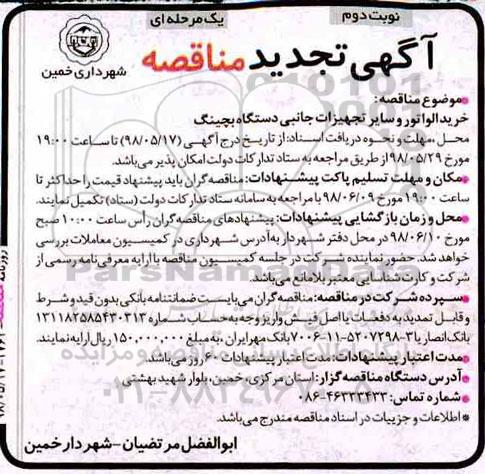 نوبت دوم
یک مرحله ای
آگهی تجدید مناقصه
شهرداری خمین
موضوع مناقصه:
خرید الواتور و سایر تجهیزات جانبی دستگاه بچینگ
محل، مهلت و نحوه دریافت اسناد: از تاریخ درج آگهی (۹۸/۰۵/۱۷) تا ساعت ۱۹:۰۰
مورخ ۹۸/۰۵/۲۹ از طریق مراجعه به ستاد تدارکات دولت امکان پذیر می‌باشد.
مکان و مهلت تسلیم پاکت پیشنهادات: مناقصه گران باید پیشنهاد قیمت را حداکثر تا
ساعت ۱۹:۰۰ مورخ ۹۸/۰۶/۰۹ با مراجعه به سامانه ستاد تدارکات دولت (ستاد) تکمیل نمایند.
محل و زمان بازگشایی پیشنهادات: پیشنهادهای مناقصه گران رأس ساعت ۱۰:۰۰ صبح
مورخ ۹۸/۰۶/۱۰ در محل دفتر شهردار به آدرس شهرداری در کمیسیون معاملات بررسی
خواهد شد. حضور نماینده شرکت در جلسه کمیسیون مناقصه با ارایه معرفی نامه رسمی از
شرکت و کارت شناسایی معتبر بلامانع می‌باشد.
سپرده شرکت در مناقصه: مناقصه گران می‌بایست ضمانتنامه بانکی بدون قید و شرط
و قابل تمدید به دفعات یا اصل فیش واریز وجه به حساب شماره ۱۳۱۱۸۲۵۸۵۴۳۰۳۱۳
بانک انصار یا ۳-۵۲۰۷۲۹۸-۱۱-۷۰۰۶ بانک مهر ایران، به مبلغ ۱۵۰,۰۰۰,۰۰۰ ریال ارایه نمایند.
مدت اعتبار پیشنهادات: مدت اعتبار پیشنهادات ۶۰ روز می‌باشد.
آدرس دستگاه مناقصه گزار: استان مرکزی، خمین، بلوار شهید بهشتی
شماره تماس: ۴۶۳۳۳۴۳۳-۰۸۶
* اطلاعات و جزییات در اسناد مناقصه مندرج می‌باشد.
ابوالفضل مرتضیان - شهردار خمین
ParsNamadData